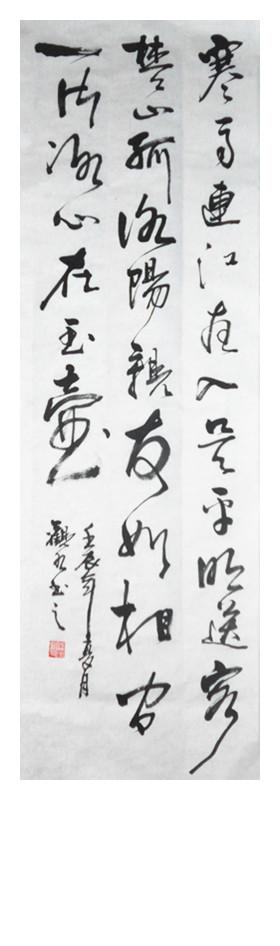 寒雨連江夜入吳平明送客
楚山孤洛陽親友如相問
一片冰心在玉壺
壬辰年夏月
觀書之